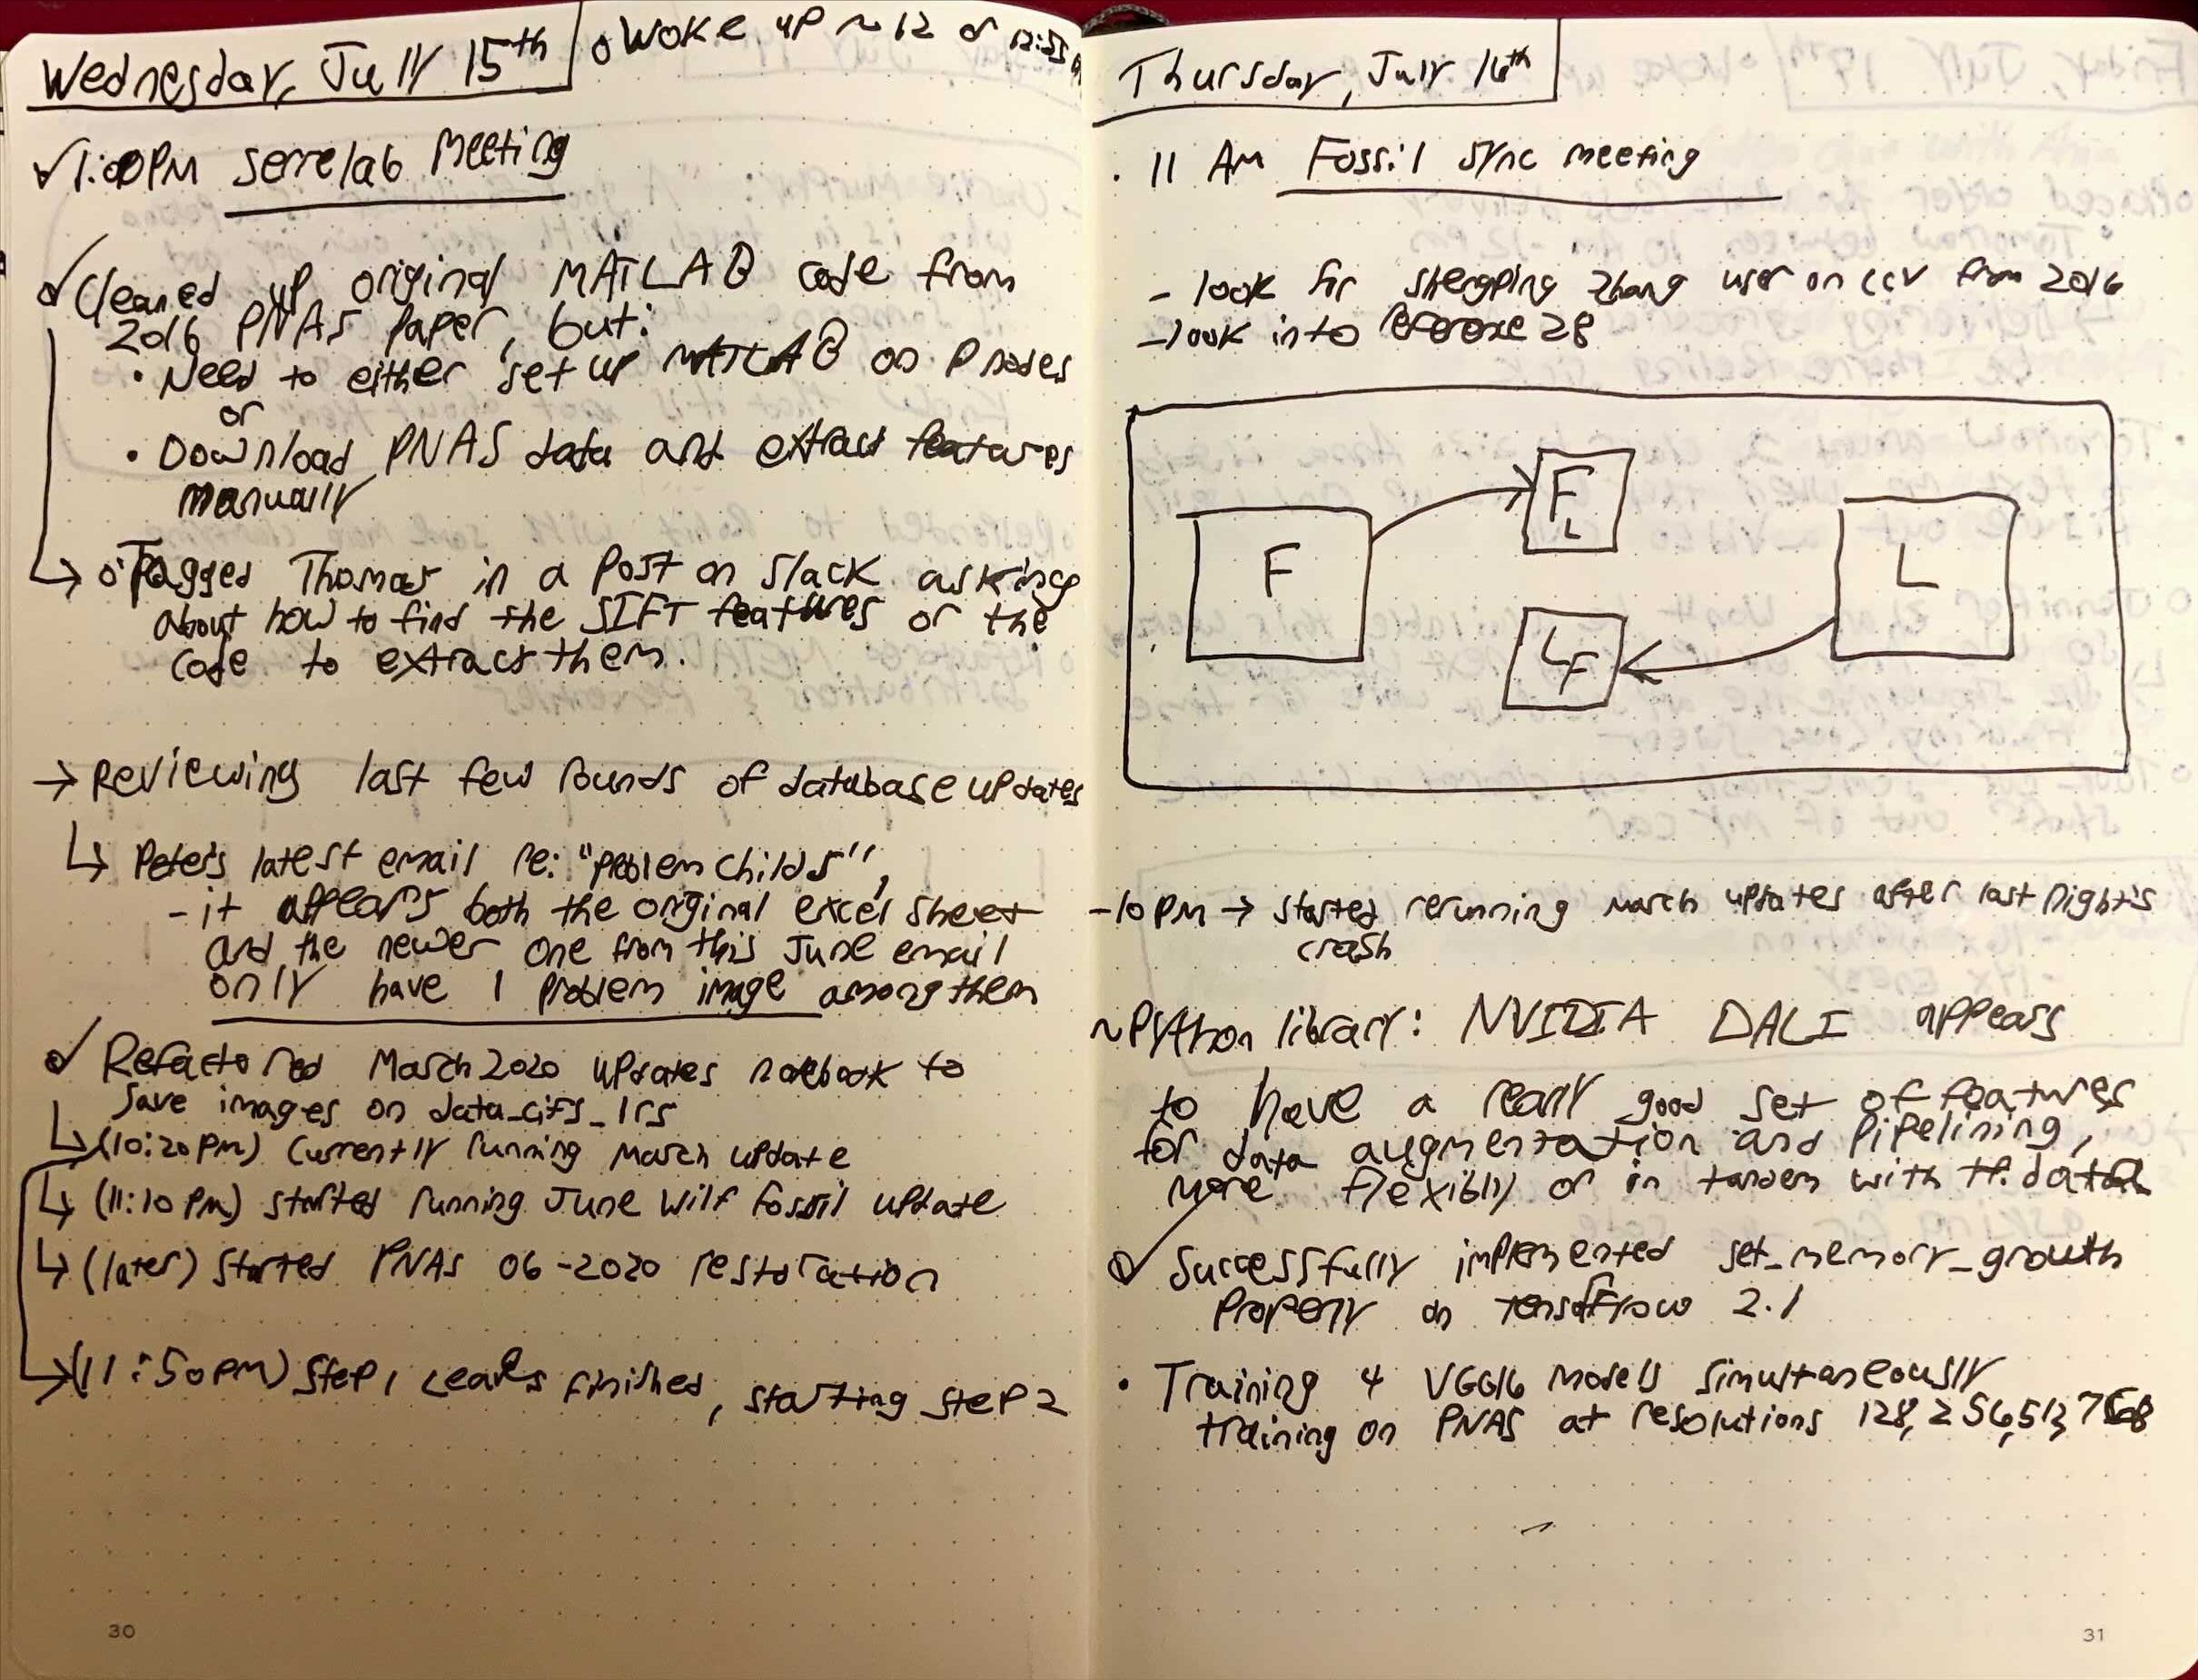 Wednesday, July 15th
o Woke up ~ 12 or 12:25
✓ 1:00PM Serrelab Meeting
✓ Cleaned up original MATLAB code from
2016 PNAS Paper, but:
• Need to either set up MATLAB on P nodes
or
• Download PNAS data and extract features
manually
↳ o Tagged Thomas in a post on Slack asking
about how to find the SIFT features or the
code to extract them.
→ Reviewing last few rounds of database updates
↳ Pete's latest email re: "problem childs",
- it appears both the original excel sheet
and the newer one from this June email
only have 1 problem image among them
✓ Refactored March 2020 updates notebook to
save images on data_cifs_lrs
↳ (10:20 PM) Currently running March update
↳ (11:10 PM) started running June Wilf Fossil update
↳ (later) started PNAS 06-2020 restoration
→ (11:50 PM) Step 1 Leaves finished, starting step 2
30
Thursday, July 16th
• 11 AM Fossil sync meeting
- look for shengping zhang user on ccv from 2016
- look into reference 28
F
F L
L
L F
- 10 PM → started rerunning March updates after last night's
crash
~ Python library: NVIDIA DALI appears
to have a really good set of features
for data augmentation and pipelining,
more flexibly or in tandem with tf.data
✓ Successfully implemented set_memory_growth
property on tensorflow 2.1
• Training 4 VGG16 models simultaneously
training on PNAS at resolutions 128, 256, 512, 768
31